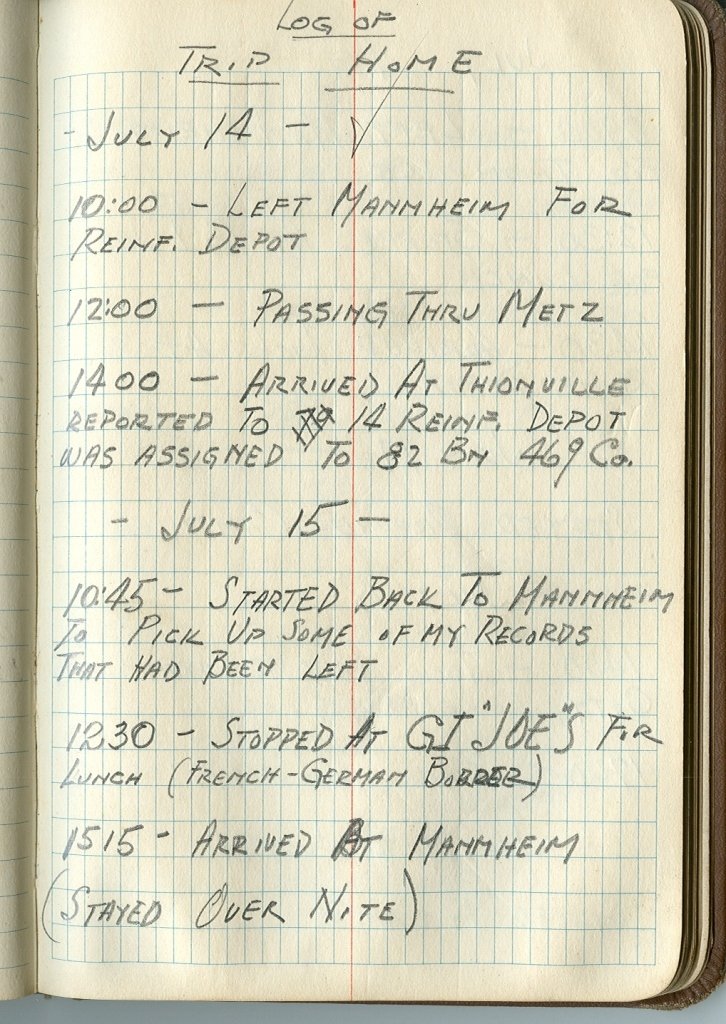 LOG OF
TRIP HOME
- JULY 14 -
10:00 - LEFT MANNHEIM FOR
REINF. DEPOT
12:00 - PASSING THRU METZ
1400 - ARRIVED AT THIONVILLE
REPORTED TO 14 REINF. DEPOT
WAS ASSIGNED TO 82 BN 469 CO.
- JULY 15 -
10:45 - STARTED BACK TO MANNHEIM
TO PICK UP SOME OF MY RECORDS
THAT HAD BEEN LEFT
1230 - STOPPED AT GI "JOE"S FOR
LUNCH (FRENCH-GERMAN BORDER)
1515 - ARRIVED AT MANNHEIM
(STAYED OVER NITE)